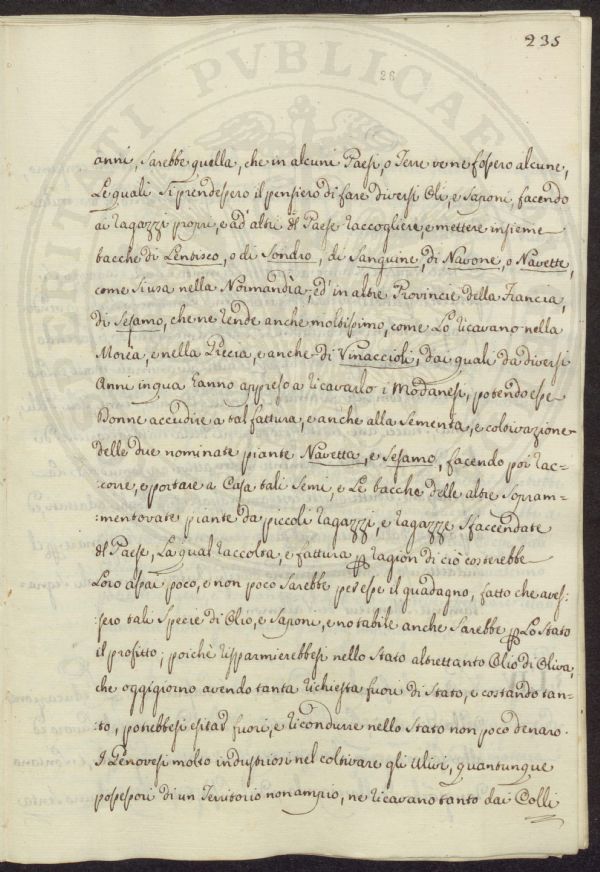 235
26
PERITATI PVBLICAE
anni, sarebbe quella, che in alcuni Paesi, o Terre ve ne fossero alcune,
Le quali si prendessero il pensiero di fare diversi Oli, e Saponi, facendo
ai Ragazzi propri, e ad' altri del Paese raccogliere, e mettere insieme
bacche di Lentisco, o di Sondro, di Sanguine, di Navone, o Navette,
come si usa nella Normandìa, ed' in altre Provincie della Francia,
di Sesamo, che ne rende anche moltissimo, come Lo ricavano nella
Morèa, e nella Grecia, e anche di Vinaccioli, dai quali da diversi
Anni in qua hanno appreso a ricavarlo i Modanesi, potendo esse
Donne accudire a tal fattura, e anche alla sementa, e coltivazione
delle due nominate piante Navetta, e Sesamo, facendo poi rac=
=corre, e portare a Casa tali Semi, e Le bacche delle altre sopram=
=mentovate piante da piccoli Ragazzi, e Ragazze sfaccendate
del Paese, La qual raccolta, e fattura p ragion di ciò costerebbe
Loro assai poco, e non poco sarebbe per esse il guadagno, fatto che aves=
=sero tali Specie di Olio, e Saponi, e notabile anche sarebbe p Lo Stato
il profitto; poichè risparmierebbesi nello Stato altrettanto Olio di Oliva,
che oggigiorno avendo tanta richiesta fuori di Stato, e costando tan=
=to, potrebbesi esitar fuori, e ricondurre nello Stato non poco denaro.
I Genovesi molto industriosi nel coltivare gli Ulivi, quantunque
possessori di un Territorio non ampio, ne ricavano tanto dai Colli